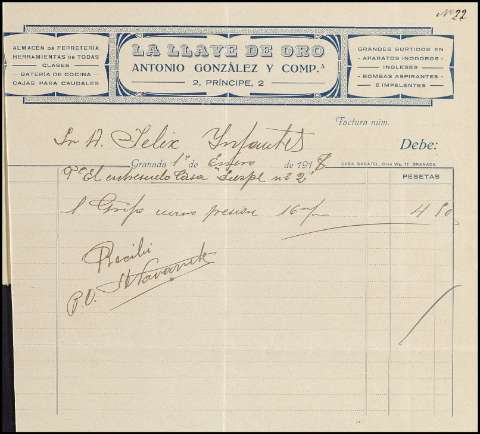 Nº 22
ALMACÉN DE FERRETERÍA
HERRAMIENTAS DE TODAS
CLASES
BATERÍA DE COCINA
CAJAS PARA CAUDALES
LA LLAVE DE ORO
ANTONIO GONZÁLEZ Y COMP.ª
2, PRÍNCIPE, 2
GRANDES SURTIDOS EN
APARATOS INODOROS
INGLESES
BOMBAS ASPIRANTES
É IMPALENTES
Factura núm.
Sr D. Felix Infantes Debe:
Granada 1º de Enero de 1918
CASA SABATEL, Gran Vía, 17, GRANADA
El entresuelo Casa nº 2"
PESETAS
1 Grifo presion 16 m/m 4 50
Recibi
P.O. Navarrete